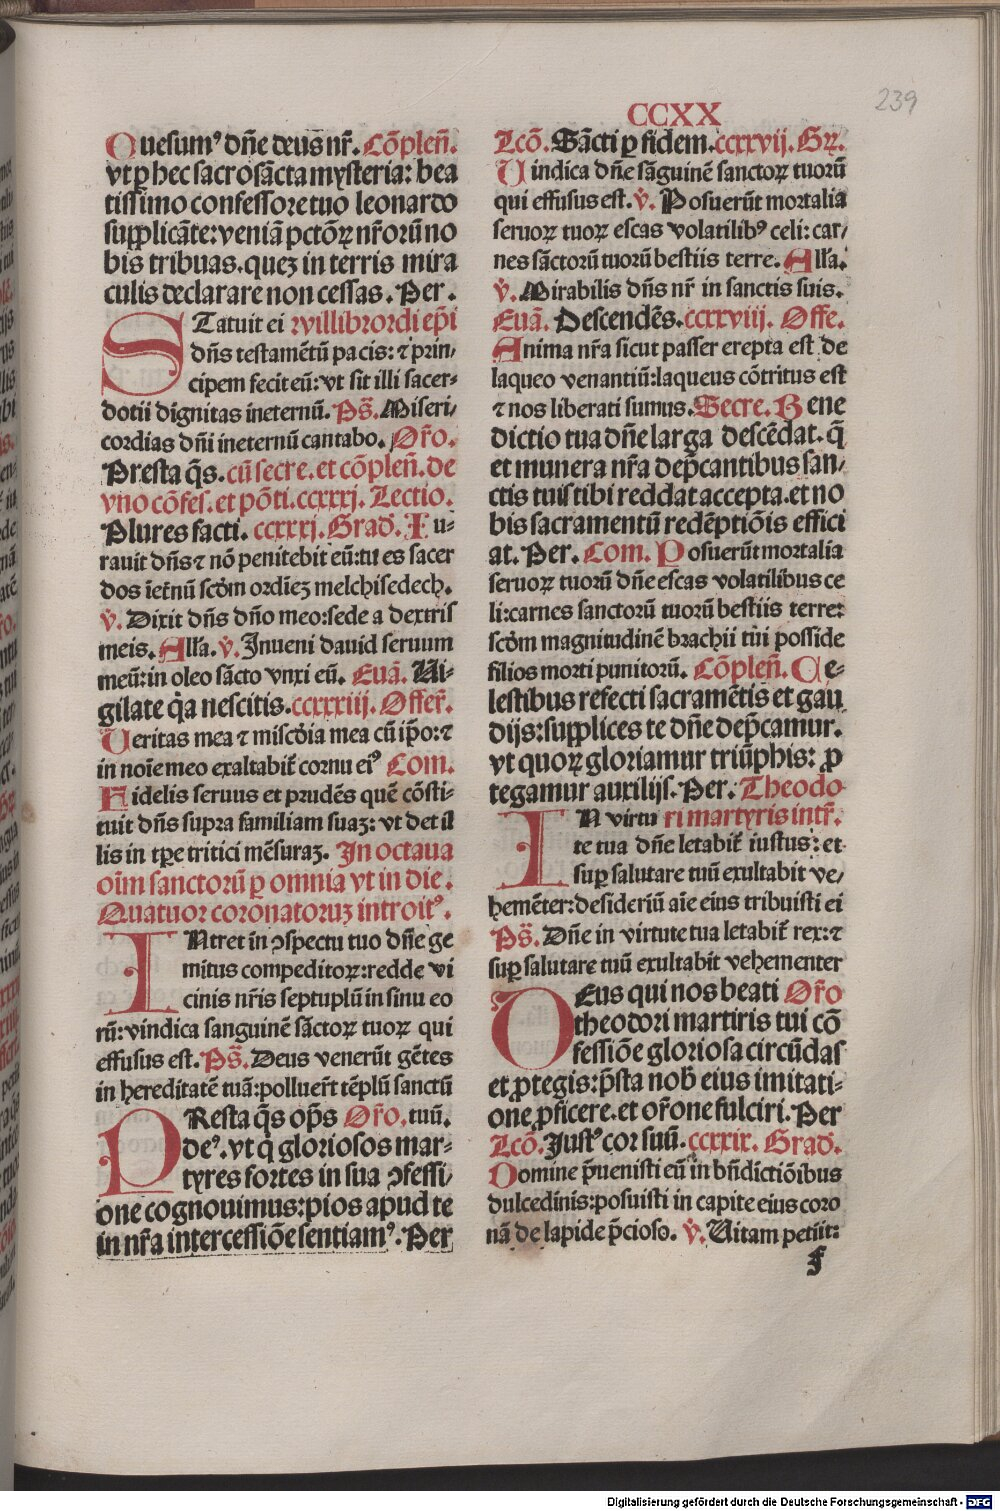 239
CCXX
Quesumꝰ dñe deus nr̃. Cõpleñ.
vt ꝑ hec sacrosãcta mysteria: bea
tissimo confessore tuo leonardo
supplicãte: veniã pctõꝝ nr̃orũ no
bis tribuas. quez in terris mira
culis declarare non cessas. Per.
STatuit ei willibrordi ep̃i
dñs testamẽtũ pacis: ⁊ prin-
cipem fecit eũ: vt sit illi sacer-
dotii dignitas ineternũ. Ps̃. Miseri-
cordias dñi ineternũ cantabo. Or̃o.
Presta q̃s. cũ secre. et cõpleñ. de
vno cõfes. et põti. ccxxxj. Lectio.
Plures facti. ccxxxj. Grad̃. Iu-
rauit dñs ⁊ nõ penitebit eũ: tu es sacer
dos iet̃nũ scd̃m ordiez melchisedech.
v̓. Dixit dñs dño meo: sede a dextris
meis. Alla̓. v̓. Inueni dauid seruum
meũ: in oleo sãcto vnxi eũ. Euã. Ui-
gilate q̃a nescitis. ccxxxiij. Offer̃.
Ueritas mea ⁊ misc̃dia mea cũ ip̃o: ⁊
in noĩe meo exaltabit̃ cornu eiꝰ Com.
Fidelis seruus et prudẽs quẽ cõsti-
tuit dñs supra familiam suaz: vt det il
lis in tp̃e tritici mẽsuraz. In octaua
oĩm sanctorũ ꝑ omnia vt in die.
Quatuor coronatoruz introitꝰ.
INtret in ɔspectu tuo dñe ge
mitus compeditoꝝ: redde vi
cinis nr̃is septuplũ in sinu eo
rũ: vindica sanguinẽ sãctoꝝ tuoꝝ qui
effusus est. Ps̃. Deus venerũt gẽtes
in hereditatẽ tuã: polluer̃t tẽplũ sanctũ
PResta q̃s op̃s Or̃o. tuũ.
deꝰ. vt q̃ gloriosos mar-
tyres fortes in sua ɔfessi-
one cognouimus: pios apud te
in nr̃a intercessiõe sentiamꝰ. Per
Lcõ. Sãcti ꝑ fidem. ccxxvij. Gꝝ.
Uindica dñe sãguinẽ sanctoꝝ tuorũ
qui effusus est. v̓. Posuerũt mortalia
seruoꝝ tuoꝝ escas volatilibꝰ celi: car-
nes sãctorũ tuorũ bestiis terre. Alla̓.
v̓. Mirabilis dñs nr̃ in sanctis suis.
Euã. Descendẽs. ccxxviij. Offe.
Anima nr̃a sicut passer erepta est de
laqueo venantiũ: laqueus cõtritus est
⁊ nos liberati sumus. Secre. Bene
dictio tua dñe larga descẽdat. q̃
et munera nr̃a dep̃cantibus san-
ctis tuis tibi reddat accepta. et no
bis sacramentũ redẽptiõis effici
at. Per. Com. Posuerũt mortalia
seruoꝝ tuorũ dñe escas volatilibus ce
li: carnes sanctorũ tuorũ bestiis terre:
scd̃m magnitudinẽ brachii tui posside
filios morti punitorũ. Cõpleñ. Ce-
lestibus refecti sacramẽtis et gau
dijs: supplices te dñe dep̃camur.
vt quoꝝ gloriamur triũphis: ꝓ
tegamur auxilijs. Per. Theodo
IN virtu ri martyris intr̃.
te tua dñe letabit̃ iustus: et
suꝑ salutare tuũ exultabit ve-
hemẽter: desideriũ aĩe eius tribuisti ei
Ps̃. Dñe in virtute tua letabit̃ rex: ⁊
suꝑ salutare tuũ exultabit vehementer
DEus qui nos beati Or̃o
theodori martiris tui cõ
fessiõe gloriosa circũdas
et ꝓtegis: p̃sta nob̃ eius imitati-
one ꝓficere. et or̃one fulciri. Per
Lcõ. Justꝰ cor suũ. ccxxix. Grad̃.
Domine p̃uenisti eũ in bñdictiõibus
dulcedinis: posuisti in capite eius coro
nã de lapide p̃cioso. v̓. Uitam petiit:
f
Digitalisierung gefördert durch die Deutsche Forschungsgemeinschaft - DFG